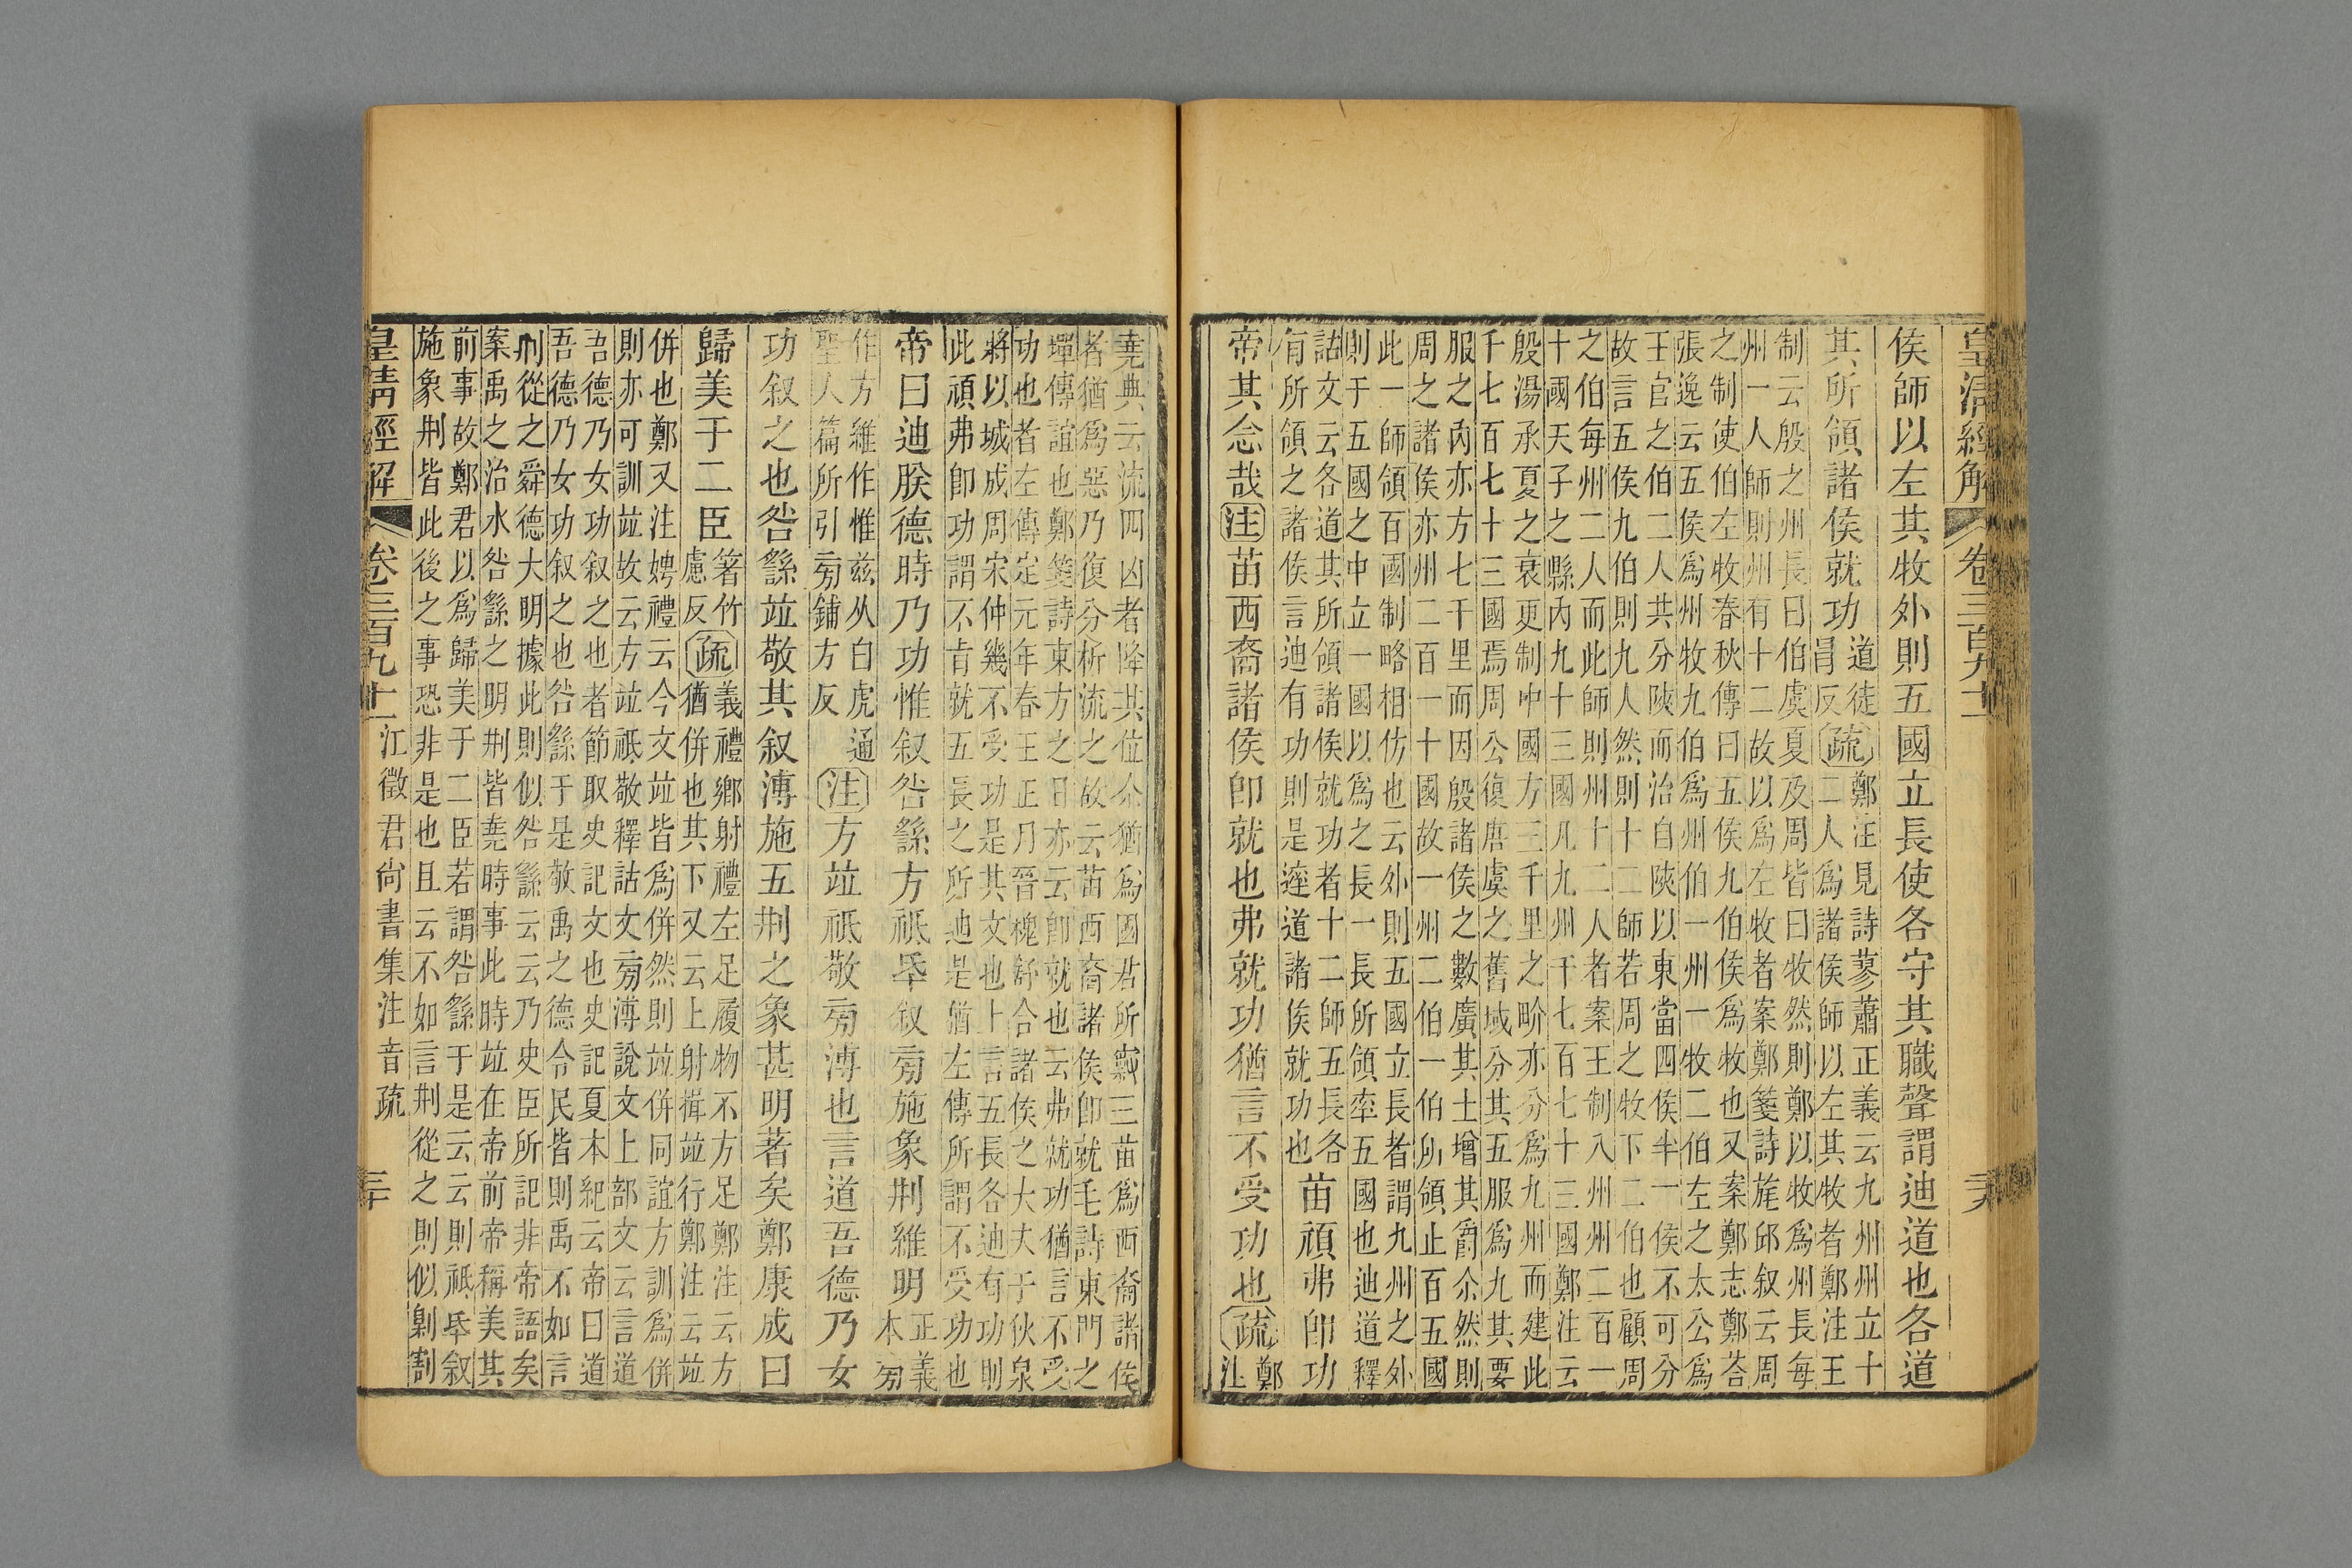 皇清經解 卷三百九十一
侯師以左其牧外則五國立長使各守其職聲謂迪道也各道
其所領諸侯就功
道徒
冐反
疏
鄭注見詩蓼蕭正義云九州州立十
二人爲諸侯師以左其牧者鄭注王
制云殷之州長曰伯虞夏及周皆曰牧然則鄭以牧爲州長每
州一人師則州有十二故以爲左牧者案鄭箋詩旄邱叙云周
之制使伯左牧春秋傳曰五侯九伯侯爲牧也又案鄭志鄭荅
張逸云五侯爲州牧九伯爲州伯一州一牧二伯左之太公爲
王官之伯二人共分陝而治自陝以東當四侯半一侯不可分
故言五侯九伯則九人然則十二師若周之牧下二伯也顧周
之伯每州二人而此師則州十二人者案王制八州州二百一
十國天子之縣內九十三國凡九州千七百七十三國鄭注云
殷湯承夏之衰更制中國方三千里之畍亦分爲九州而建此
千七百七十三國焉周公復唐虞之舊域分其五服爲九其要
服之內亦方七千里而因殷諸侯之數廣其土增其爵尒然則
周之諸侯亦州二百一十國故一州二伯一伯所領止百五國
此一師領百國制略相仿也云外則五國立長者謂九州之外
則于五國之中立一國以爲之長一長所領率五國也迪道釋
詁文云各道其所領諸侯就功者十二師五長各
有所領之諸侯言迪有功則是逹道諸侯就功也
苗頑弗卽功
帝其念哉注苗西裔諸侯卽就也弗就功猶言不受功也疏
鄭
注
堯典云流四凶者降其位尒猶爲國君所竄三苗爲西裔諸侯
者猶爲惡乃復分析流之故云苗西裔諸侯卽就毛詩東門之
墠傳誼也鄭箋詩東方之日亦云卽就也云弗就功猶言不受
功也者左傳定元年春王正月晉魏舒合諸侯之大夫于狄泉
將以城成周宋仲幾不受功是其文也上言五長各迪有功則
此頑弗卽功謂不肯就五長之所迪是猶左傳所謂不受功也
帝曰迪朕德時乃功惟叙咎繇方祗氒叙旁施象荆維明
正義
本旁
作方維作惟茲从白虎通
聖人篇所引旁鋪方反
注方竝祗敬旁溥也言道吾德乃女
功叙之也咎繇竝敬其叙溥施五荆之象甚明著矣鄭康成曰
歸美于二臣
箸竹
慮反
疏
義禮鄉射禮左足履物不方足鄭注云方
猶併也其下又云上射揖竝行鄭注云竝
併也鄭又注娉禮云今文竝皆爲併然則竝併同誼方訓爲併
則亦可訓竝故云方竝祗敬釋詁文旁溥說文上部文云言道
吾德乃女功叙之也者節取史記文也史記夏本紀云帝曰道
吾德乃女功叙之也咎繇于是敬禹之德令民皆則禹不如言
荆從之舜德大明據此則似咎繇云云乃史臣所記非帝語矣
案禹之治水咎繇之明荆皆堯時事此時竝在帝前帝稱美其
前事故鄭君以爲歸美于二臣若謂咎繇于是云云則祗氒叙
施象荆皆此後之事恐非是也且云不如言荆從之則似剿割
皇清經解 卷三百九十一 江徵君尙書集注音疏 三十